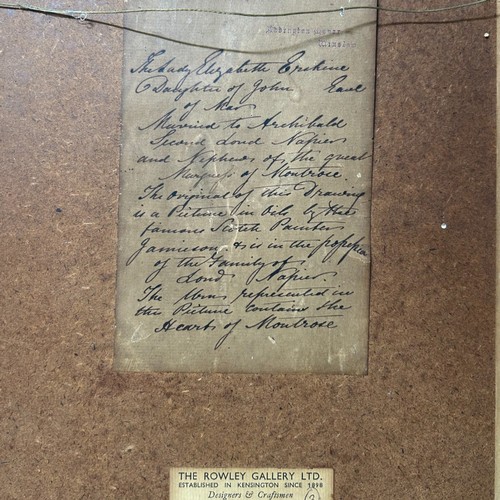 Addington Manor
Winslow
The Lady Elizabeth Erskine
Daughter of John Earl
of Mar
Married to Archibald
Second Lord Napier
and Nephew of the great
Marquess of Montrose.
The Original of this Drawing
is a Picture in Oils by the
famous Scotch Painter
Jamieson & is in the
of the Family of
Lord Napier.
The Urn represented in
the Picture contains the
Heart of Montrose
THE ROWLEY GALLERY LTD.
ESTABLISHED IN KENSINGTON SINCE 1898
Designers & Craftsmen